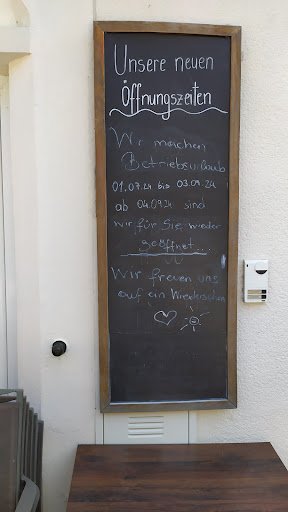 Unsere neuen
Öffnungszeiten
Wir machen
Betriebsurlaub
01.07.24 bis 03.09.24
ab 04.09.24 sind
wir für Sie wieder
geöffnet...
Wir freuen uns
auf ein Wiedersehen